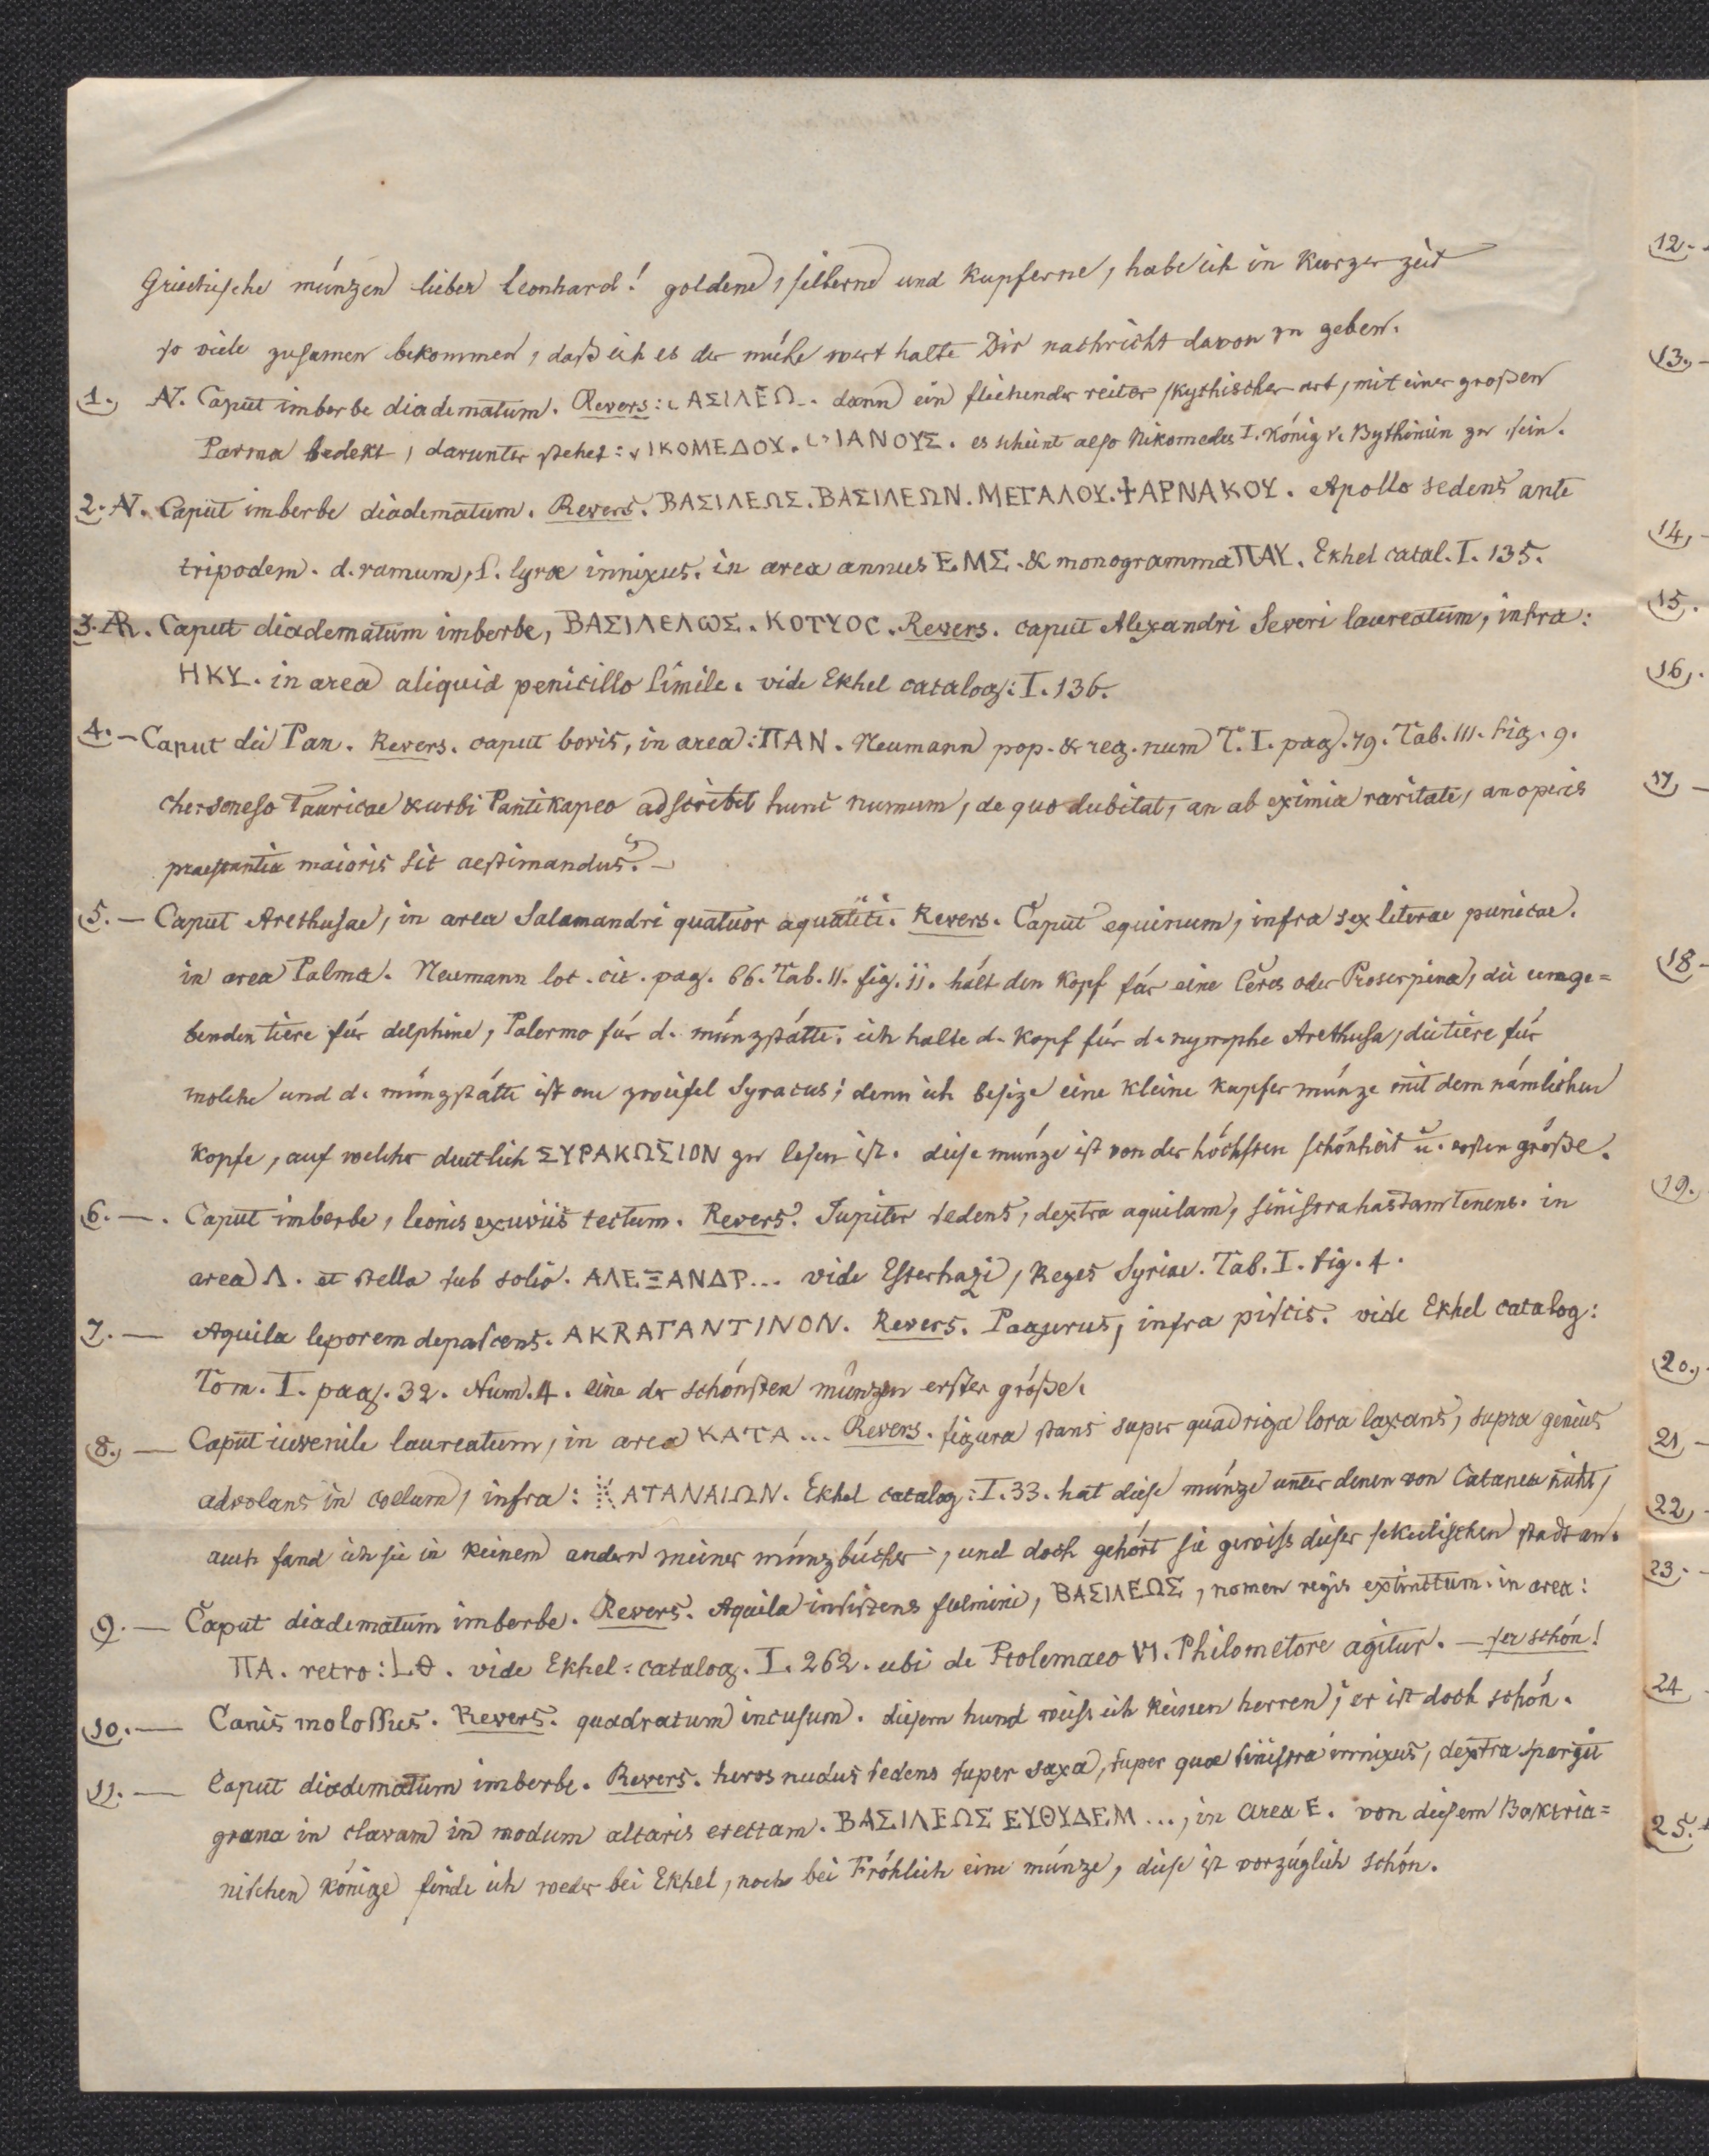 Griechische münzen lieber Leonhard! goldene, silberne und Kupferne, habe ich in Kurzer zeit
so viele zusamen bekommen, daß ich es der mühe wert halte Dir nachricht davon zu geben.
1., N. Caput imberbe diadematum. Revers: ΑΣΙΛΕΩ.. dann ein fliehender reiter skythischer art, mit einer großen
Parma bedekt, darunter stehet: ΙΚΟΜΕΔΟΥ. ΙΑΝΟΥΣ. es scheint also Nikomedes I. König v. Bythinien zu sein.
2. N. Caput imberbe diadematum. Revers. ΒΑΣΙΛΕΩΣ. ΒΑΣΙΛΕΩΝ. ΜΕΓΑΛΟΥ. ‡ΑΡΝΑΚΟΥ. Apollo sedens ante
tripodem. d. ramum, S. lyræ innixus. in area annus Ε.ΜΣ. & monogramma ΠΑΥ. Ekhel catal. I. 135.
3. AR. Caput diadematum imberbe, ΒΑΣΙΛΕΛΩΣ. ΚΟΤΥΟC. Revers. caput Alexandri Severi laureatum, infra:
ΗΚΥ. in area aliquid penicillo simile. vide Ekhel catalog: I. 136.
4. — Caput dei Pan. Revers. caput bovis, in area: ΠΑΝ. Neumann pop. & reg. num T. I. pag. 79. Tab. III. fig. 9.
chersoneso Tauricae & urbi Pantikapeo adscribit hunc numum, de quo dubitat, an ab eximia raritate, an operis
praestantia maioris sit aestimandus? —
5. — Caput Arethusae, in area Salamandri quatuor aquatici. Revers. Caput equinum, infra sex literae punicae.
in area Palma. Neumann loc. cit. pag. 66. Tab. II. fig. 11. hält den Kopf für eine Ceres oder Proserpina, die umge=
benden tiere für delphine, Palermo für d. münzstätte; ich halte d. Kopf für d. nymphe Arethusa, die tiere für
molche und d. münzstätte ist one zweifel Syracus; denn ich besize eine kleine kupfer münze mit dem nämlichen
kopfe, auf welcher deutlich ΣΥΡΑΚΩΣΙΟΝ zu lesen ist. diese münze ist von der höchsten schönheit u. ersten größe.
6. — . Caput imberbe, leonis exuviis tectum. Revers. Iupiter sedens, dextra aquilam, sinistra hastam tenens. in
area Λ. et stella sub solio. ΑΛΕΞΑΝΔΡ... vide Esterhazi, Reges Syriae. Tab. I. fig. 4.
7. — Aquila leporem depascens. AKRAΓANTINON. Revers. Pagurus, infra piscis. vide Ekhel catalog:
Tom. I. pag. 32. Num. 4. eine der schönsten münzen erster größe.
8. — Caput iuvenile laureatum, in area ΚΑΤΑ ... Revers. figura stans super quadriga lora laxans, supra genius
advolans in coelum, infra: ΚΑΤΑΝΑΙΩΝ. Ekhel catalog: I. 33. hat diese münze unter denen von Catanea nicht,
auch fand ich sie in keinem andern meiner münzbücher, und doch gehört sie gewiss dieser sikulischen stadt an.
9. — Caput diadematum imberbe. Revers. Aquila insistens fulmini, ΒΑΣΙΛΕΩΣ, nomen regis extinctum. in area:
ΠΑ. retro: LΘ. vide Ekhel: catalog. I. 262. ubi de Ptolemaeo VI. Philometore agitur. — ser schön!
10. — Canis molossus. Revers. quadratum incusum. diesem hund weiss ich keinen herren; er ist doch schön.
11. — Caput diadematum imberbe. Revers. heros nudus sedens super saxa, super quae sinistra innixus, dextra spargit
grana in clavam in modum altaris erectam. ΒΑΣΙΛΕΩΣ ΕΥΘΥΔΕΜ ..., in area Ε. von diesem Baktria=
nischen könige finde ich weder bei Ekhel, noch bei Fröhlich eine münze, diese ist vorzüglich schön.
12. -
13., -
14, -
15.
16,.
17, -
18 -
19.
20.,
21, -
22, -
23. -
24
25.